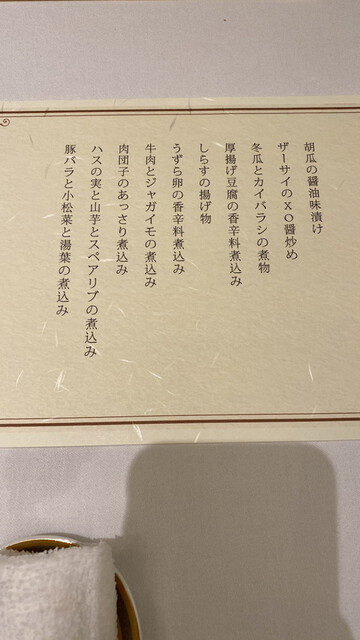 胡瓜の醤油味漬け
ザーサイのXO醤炒め
冬瓜とカイバラシの煮物
厚揚げ豆腐の香辛料煮込み
しらすの揚げ物
うずら卵の香辛料煮込み
牛肉とジャガイモの煮込み
肉団子のあっさり煮込み
ハスの実と山芋とスペアリブの煮込み
豚バラと小松菜と湯葉の煮込み